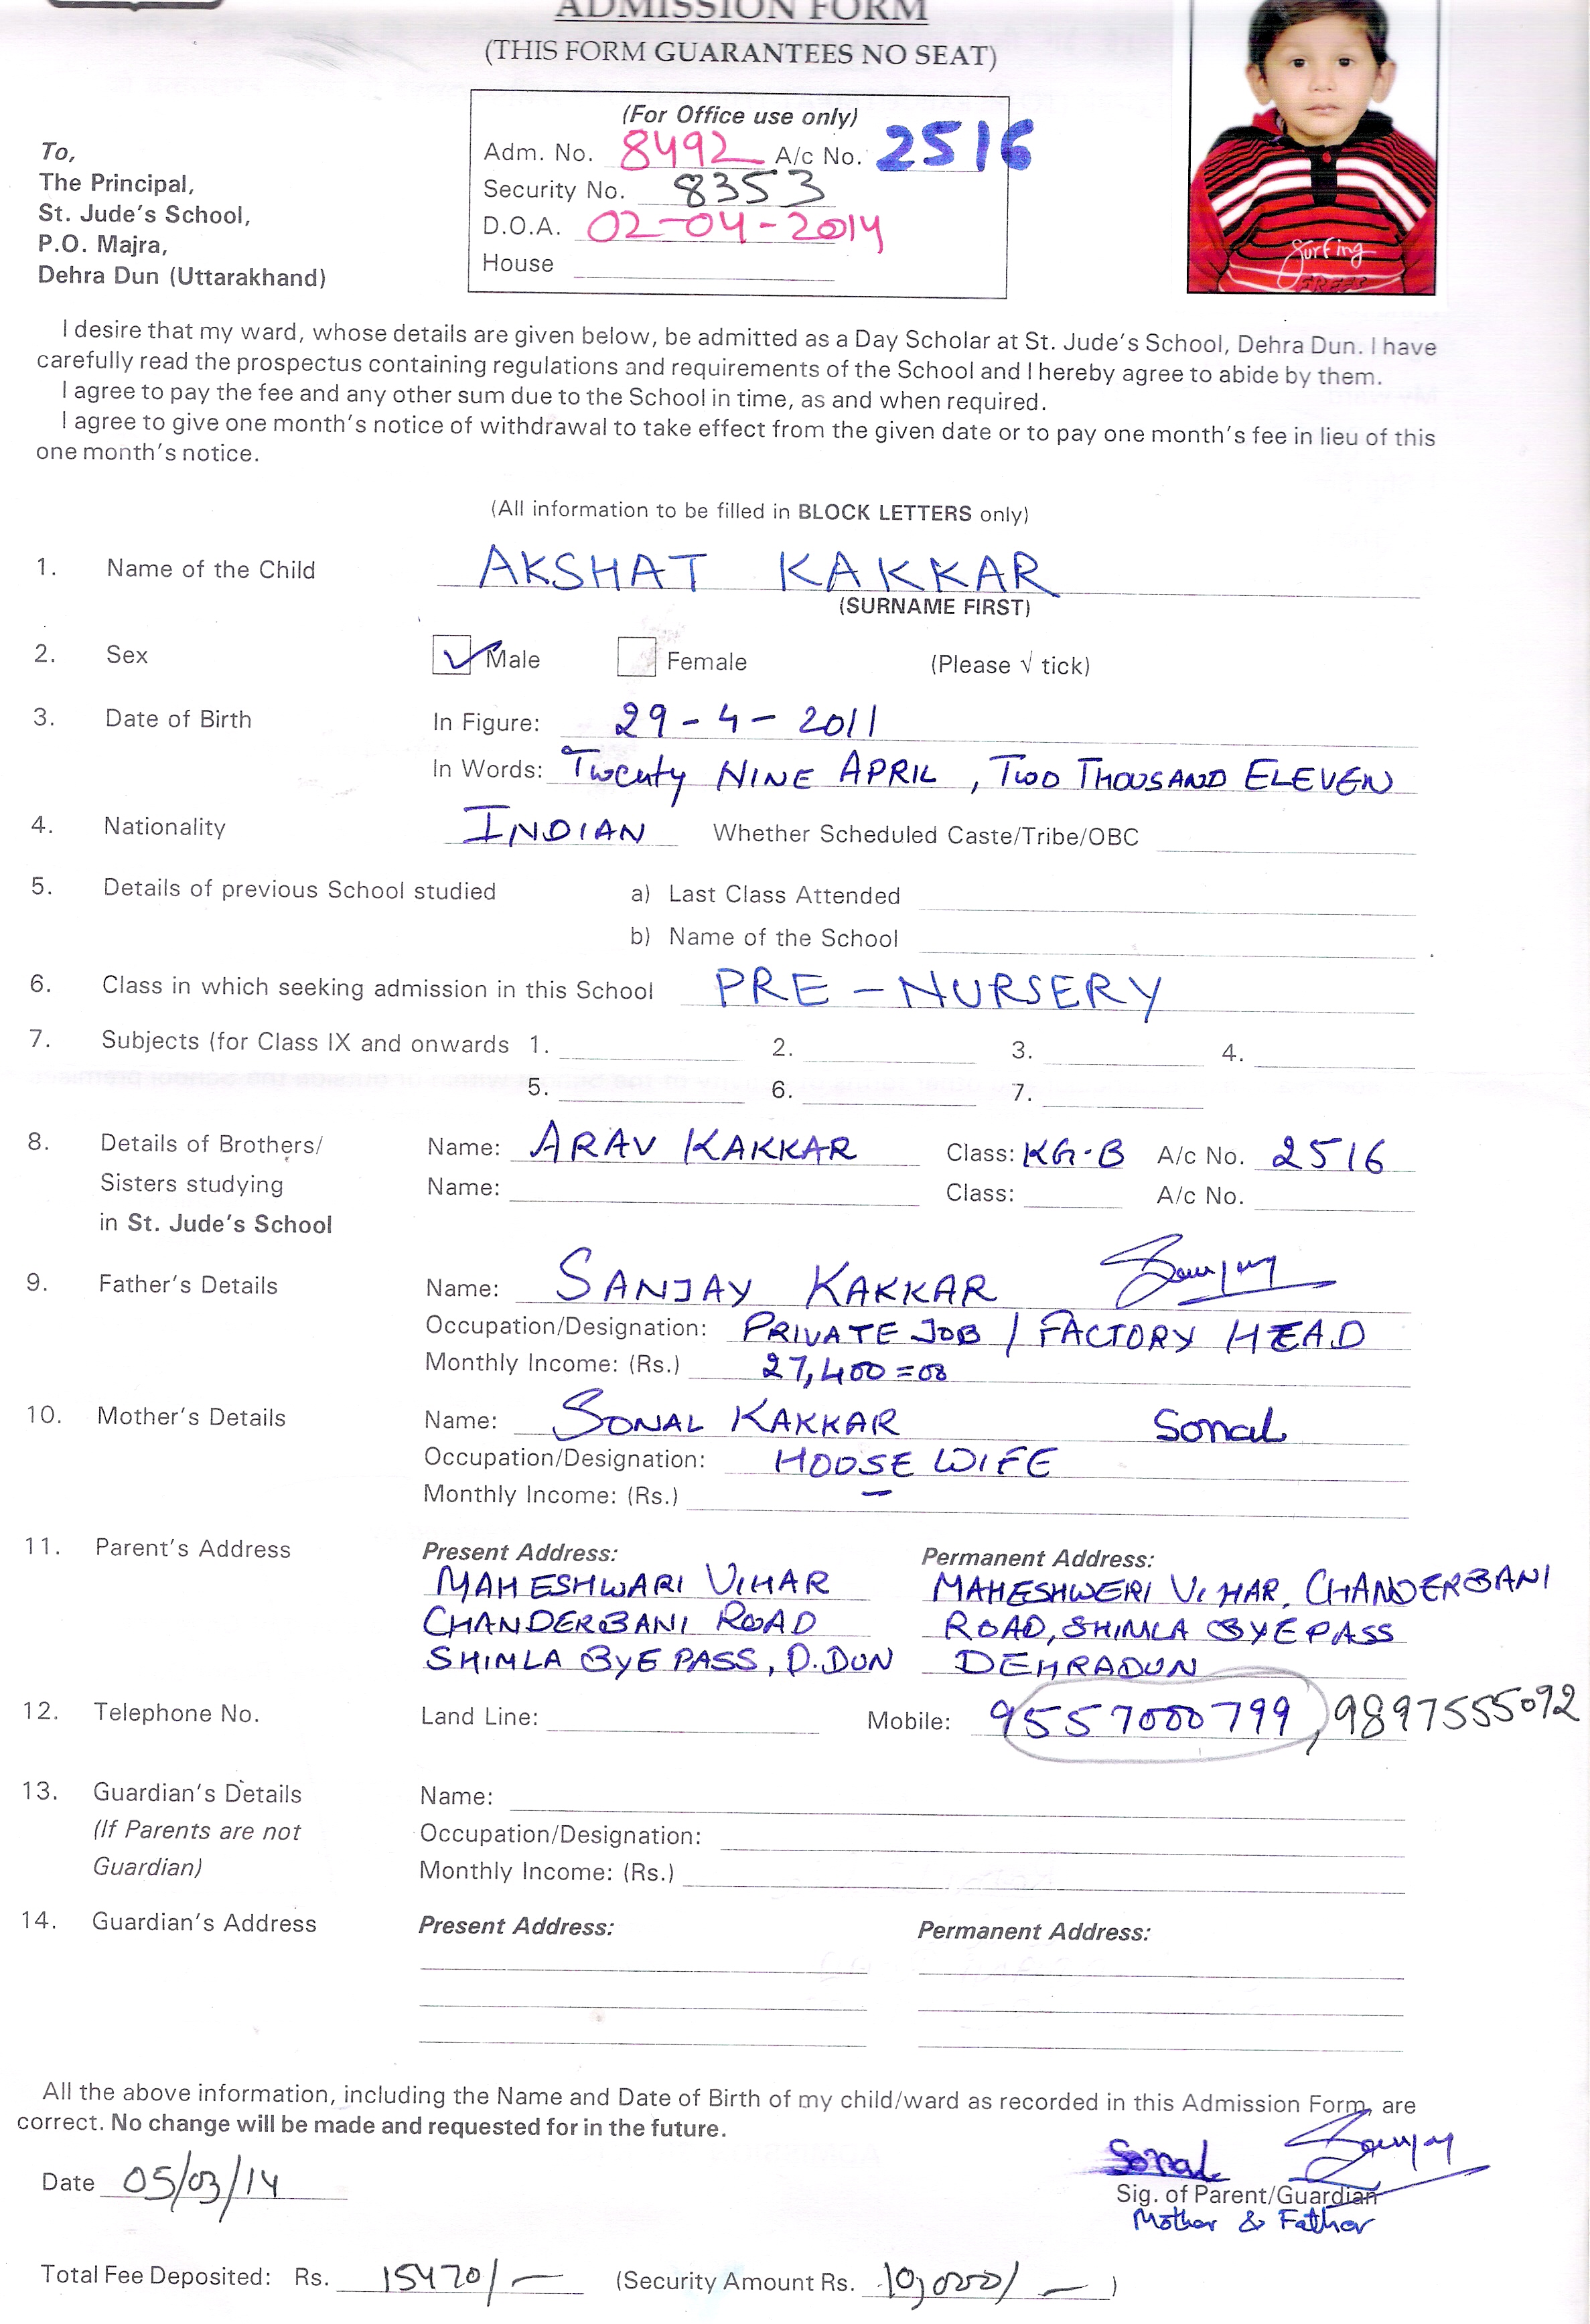 ADMISSION FORM
(THIS FORM GUARANTEES NO SEAT)
(For Office use only)
Adm. No. 8492 A/c No. 2516
Security No. 8353
D.O.A. 02-04-2014
House
To,
The Principal,
St. Jude's School,
P.O. Majra,
Dehra Dun (Uttarakhand)
Surfing
STREET
I desire that my ward, whose details are given below, be admitted as a Day Scholar at St. Jude's School, Dehra Dun. I have
carefully read the prospectus containing regulations and requirements of the School and I hereby agree to abide by them.
I agree to pay the fee and any other sum due to the School in time, as and when required.
I agree to give one month's notice of withdrawal to take effect from the given date or to pay one month's fee in lieu of this
one month's notice.
(All information to be filled in BLOCK LETTERS only)
1. Name of the Child AKSHAT KAKKAR
(SURNAME FIRST)
2. Sex Male Female (Please √ tick)
3. Date of Birth In Figure: 29-4-2011
In Words: Twenty NINE APRIL, TWO THOUSAND ELEVEN
4. Nationality INDIAN Whether Scheduled Caste/Tribe/OBC
5. Details of previous School studied a) Last Class Attended
b) Name of the School
6. Class in which seeking admission in this School PRE-NURSERY
7. Subjects (for Class IX and onwards 1. 2. 3. 4.
5. 6. 7.
8. Details of Brothers/ Name: ARAV KAKKAR Class: KG-B A/c No. 2516
Sisters studying Name: Class: A/c No.
in St. Jude's School
9. Father's Details Name: SANJAY KAKKAR Sanjay
Occupation/Designation: PRIVATE JOB / FACTORY HEAD
Monthly Income: (Rs.) 27,400=00
10. Mother's Details Name: SONAL KAKKAR Sonal
Occupation/Designation: HOUSE WIFE
Monthly Income: (Rs.)
11. Parent's Address Present Address: Permanent Address:
MAHESHWARI VIHAR MAHESHWERI VIHAR, CHANDERBANI
CHANDERBANI ROAD ROAD, SHIMLA BYE PASS
SHIMLA BYE PASS, D.DUN DEHRADUN
12. Telephone No. Land Line: Mobile: 9557000799, 9897555092
13. Guardian's Details Name:
(If Parents are not Occupation/Designation:
Guardian) Monthly Income: (Rs.)
14. Guardian's Address Present Address: Permanent Address:
All the above information, including the Name and Date of Birth of my child/ward as recorded in this Admission Form, are
correct. No change will be made and requested for in the future.
Sonal Sanjay
Date 05/03/14
Sig. of Parent/Guardian
Mother & Father
Total Fee Deposited: Rs. 15470/- (Security Amount Rs. 10,000/-)